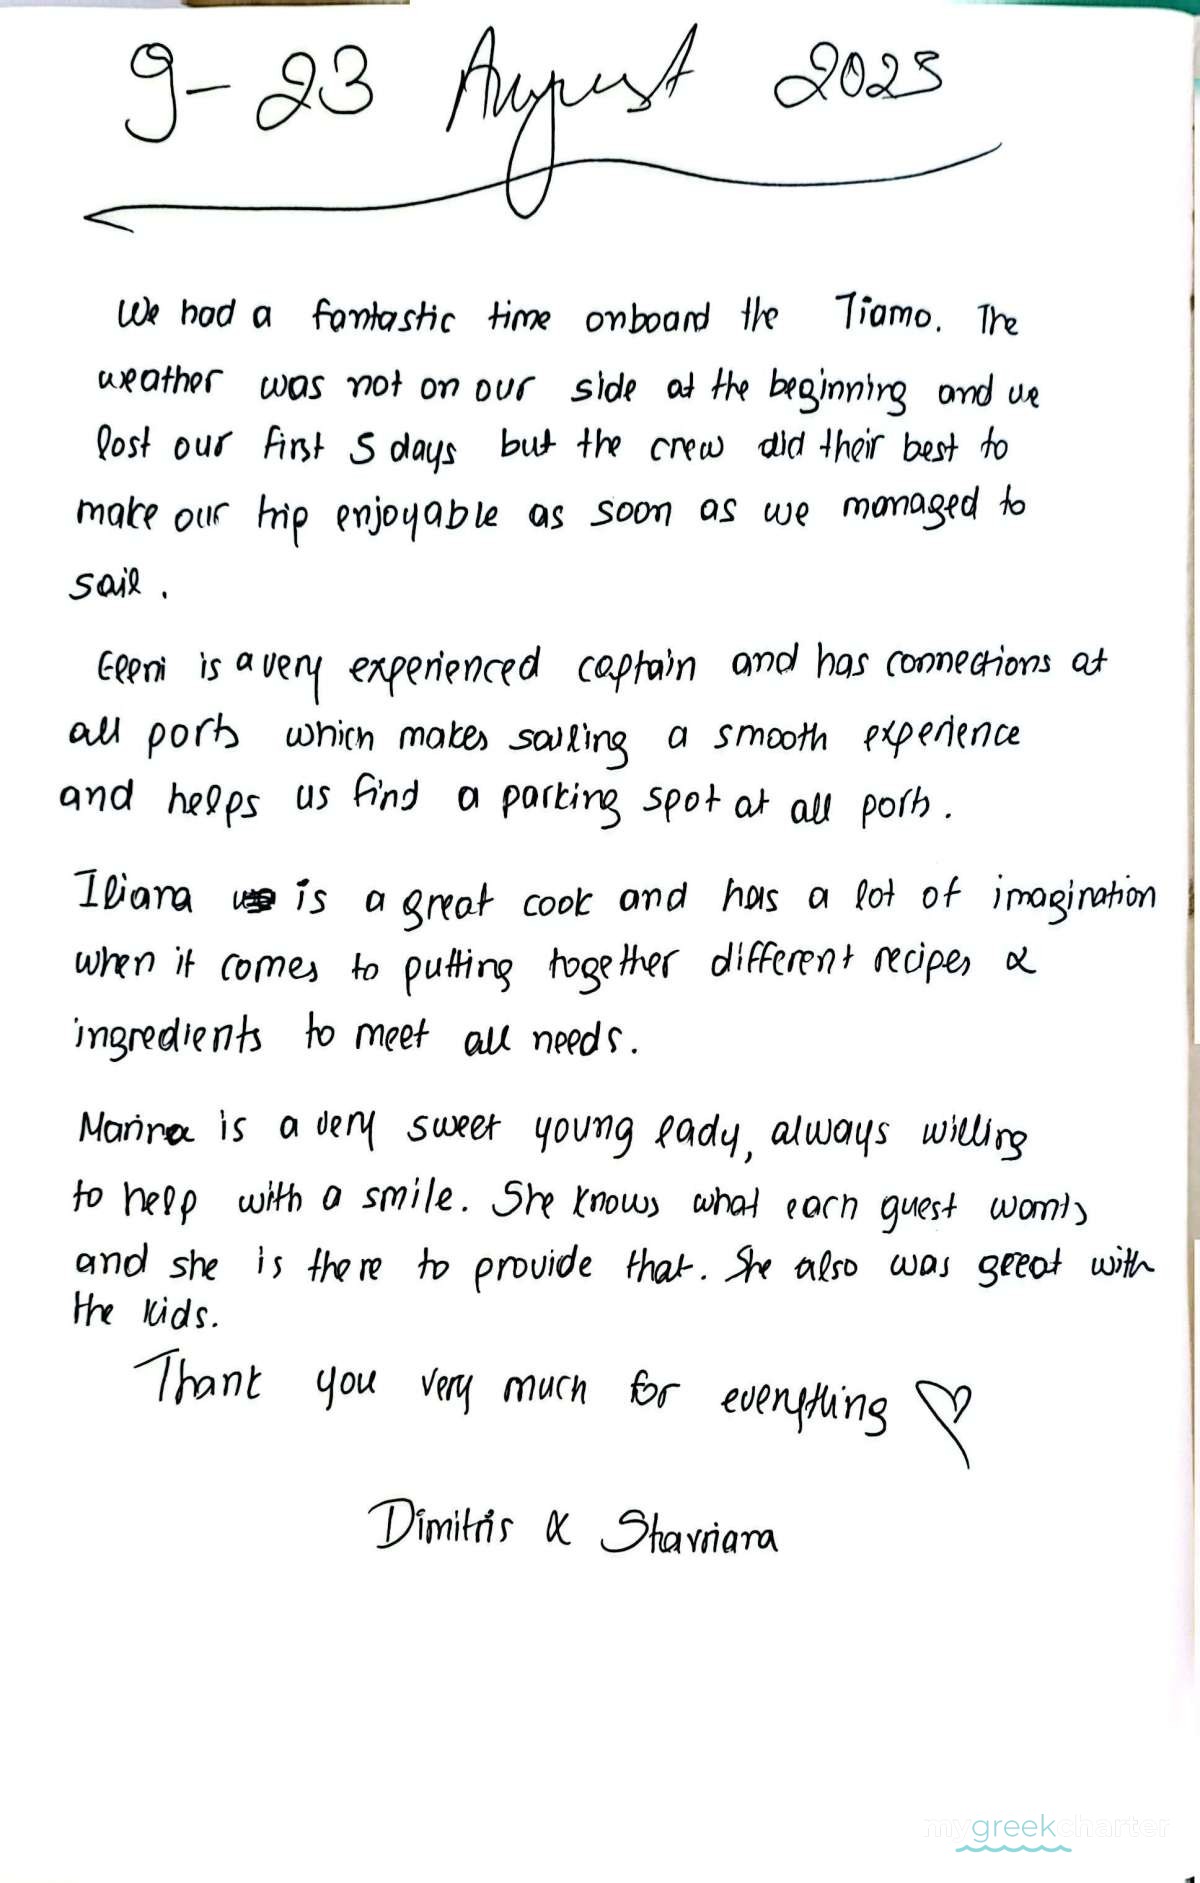 9-23 August 2025
We had a fantastic time onboard the Tiamo. The
weather was not on our side at the beginning and we
lost our first 5 days but the crew did their best to
make our trip enjoyable as soon as we managed to
sail.
Eleni is a very experienced captain and has connections at
all ports which makes sailing a smooth experience
and helps us find a parking spot at all ports.
Iliana is a great cook and has a lot of imagination
when it comes to putting together different recipes &
ingredients to meet all needs.
Marina is a very sweet young lady, always willing
to help with a smile. She knows what each guest wants
and she is there to provide that. She also was great with
the kids.
Thank you very much for everything
Dimitris &
mygreekcharter